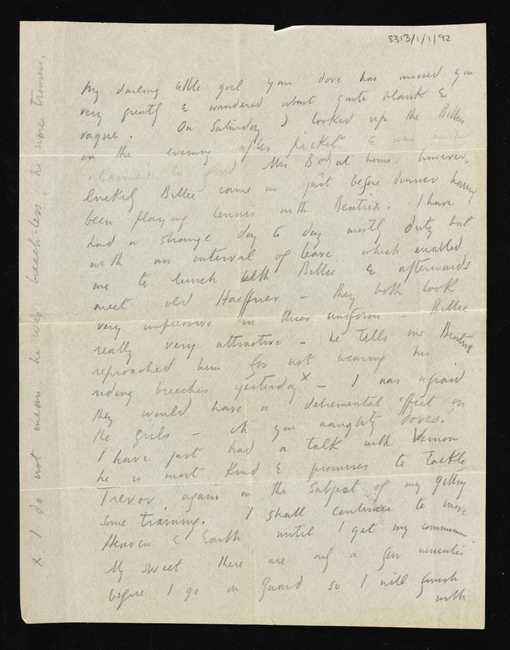 8313/1/1/92
My darling little girl your dove has missed you
very greatly & wandered about quite blank &
vague. On Saturday I looked up the Billies
in the evening after picket & was
to find Mrs B at home. however,
luckily Billie came in just before dinner having
been playing tennis with Beatrix. I have
had a strange day to day mostly duty but
with an interval of leave which enabled
me to lunch with Billie & afterwards
meet old Haeffner - they both look
very impressive in their uniform - Billie
really very attractive - he tells me Beatrix
reproached him for not wearing his
riding breeches yesterday x - I was afraid
they would have a detremental effect on
the girls - oh you naughty doves.
I have just had a talk with Vernon
he is most kind & promises to tackle
Trevor again on the subject of my getting
some training. I shall continue to move
Heaven & Earth until I get my
My sweet there are only a few
before I go on guard so I will finish
with
x I do not mean he was breechless, he wore trousers.